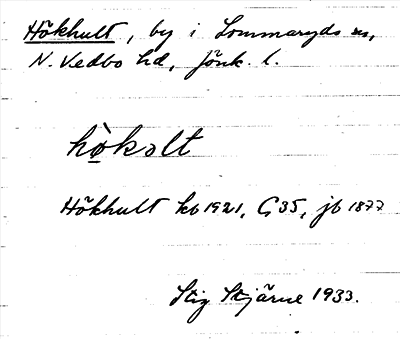 Hökhult, by i Lommaryds sn,
N. Vedbo hd, Jönk. l.
hò̤kəlt
Hökhult kb 1921, G35, jb 1877
Stig Stjärne 1933.